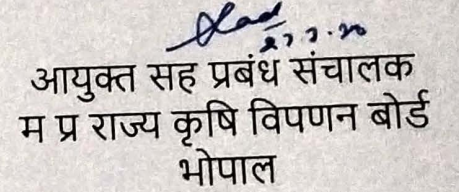 आयुक्त सह प्रबंध संचालक
म प्र राज्य कृषि विपणन बोर्ड
भोपाल